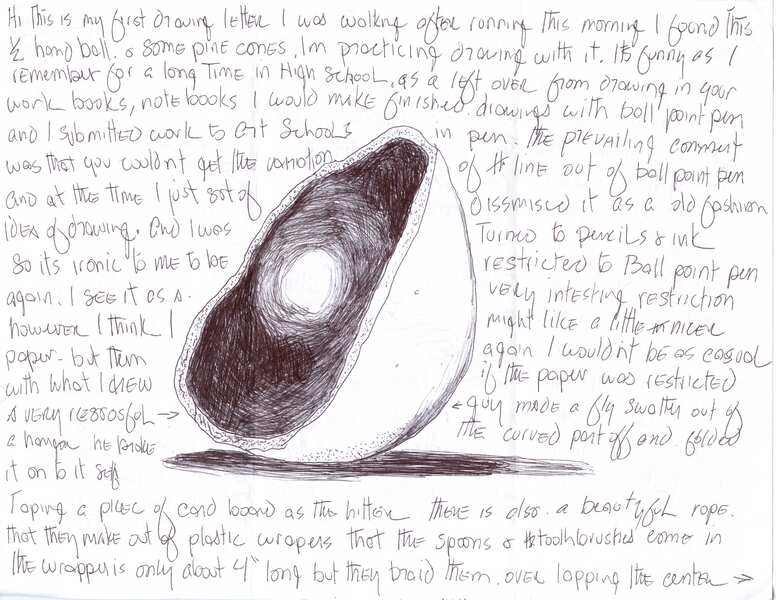 Hi This is my first drawing letter I was walking after running This morning I found This
½ hand ball. & some pine cones, Im practicing drawing with it. Its funny as I
remember for a long Time in High School, as a left over from drawing in your
work books, notebooks I would make finished drawings with ball point pen
and I submitted work to art Schools in pen. The prevailing comment
was that you couldnt get the variation of line out of ball point pen
and at the time I just sort of dissmised it as a old fashion
idea of drawing. And I was Turned to pencils & ink
so its ironic to me to be restricted to Ball point pen
again. I see it as a very intesting restriction
however I think I might like a little nicer
paper - but then again I wouldnt be as casual
with what I drew if the paper was restricted
A very resosful → ← guy made a fly swatty out of
a hanger he broke The curved part off and folded
it on to it self
Taping a piece of card board as the hitter there is also a beautyful rope.
that they make out of plastic wrapers that the spoons & toothbrushes come in
The wrapper is only about 4" long but they braid them. over lapping the center →